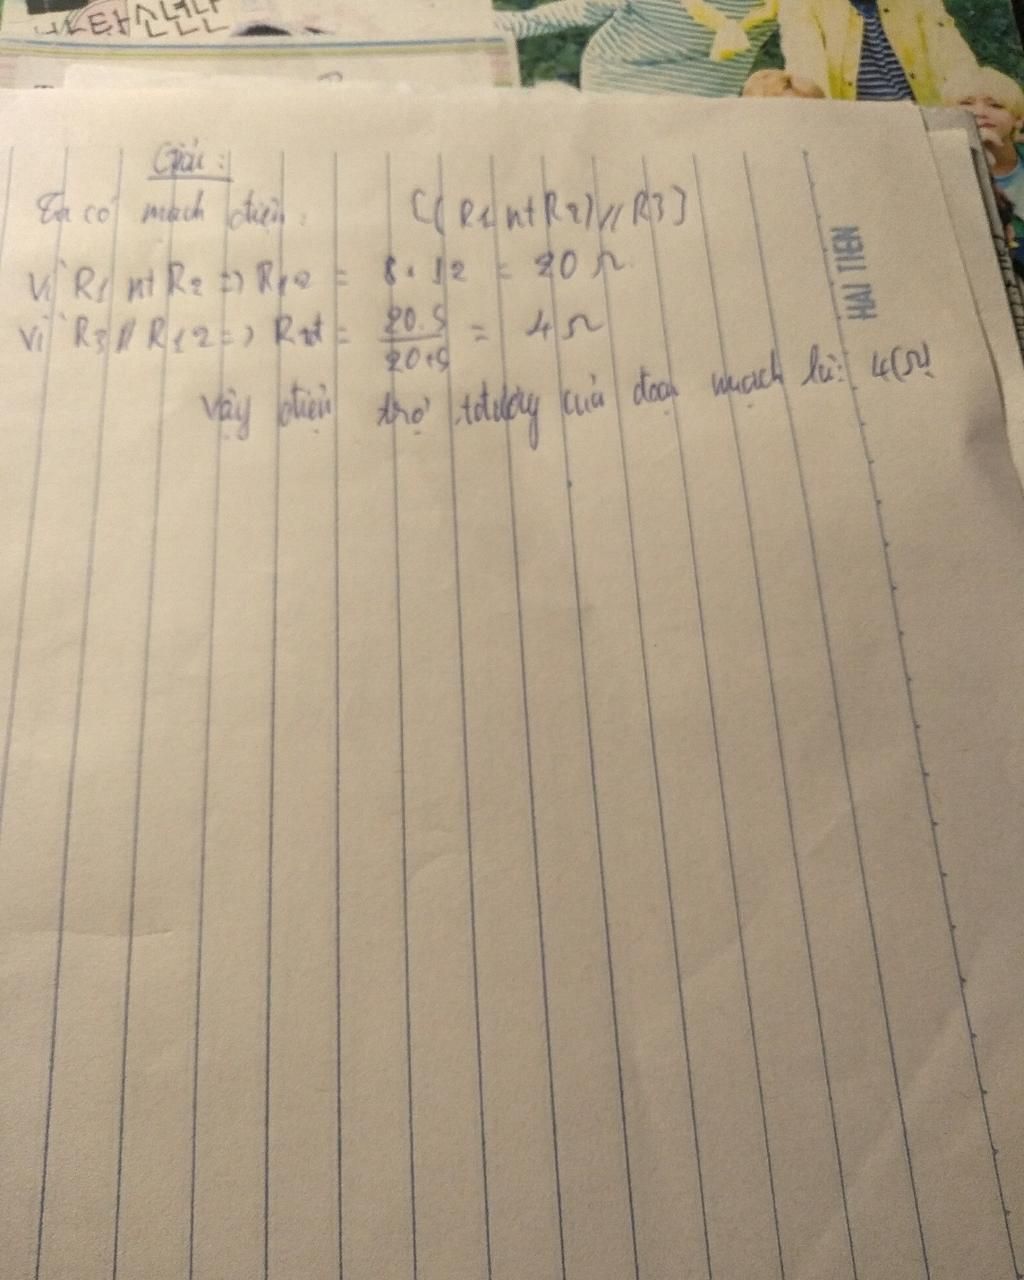 탄소년단
Giải:
Ta có mạch điện: [(R1 nt R2) // R3]
Vì R1 nt R2 => R12 = 8 + 12 = 20 Ω
Vì R3 // R12 => Rtđ = 20.5 / 20+5 = 4 Ω
Vậy điện trợ tđương của đoạn mạch là: 4(Ω)
HẢI TIẾN